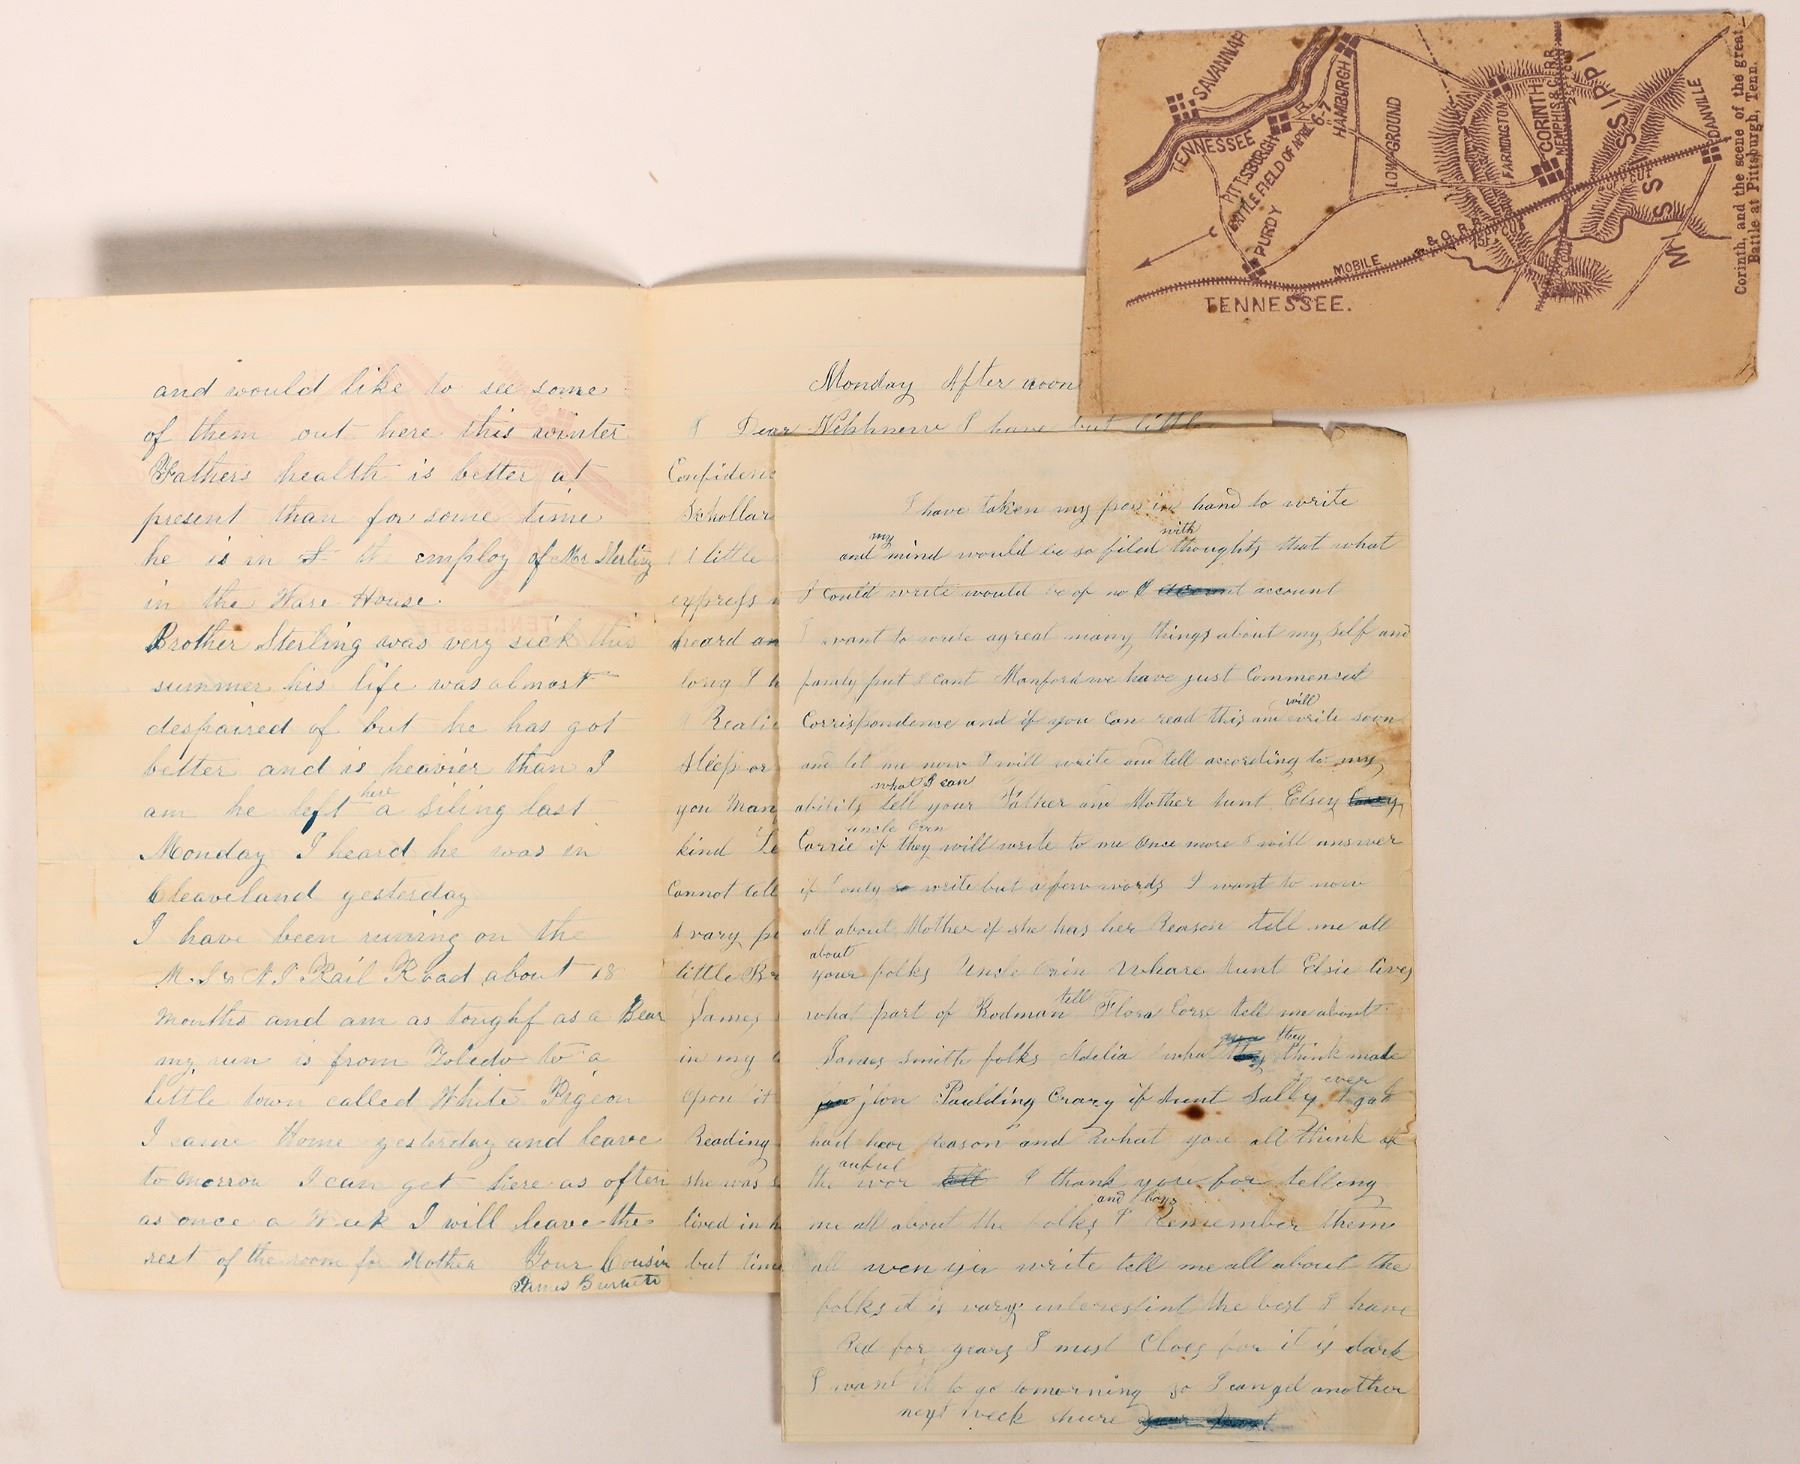 and would like to see some
of them out here this winter
Fathers health is better at
present than for some time
he is in the employ of Mr Sterling
in the Ware House.
Brother Sterling was very sick this
summer his life was almost
despaired of but he has got
better and is heavier than I
am he left here a Siling last
Monday I heard he was in
Cleaveland yesterday
I have been runing on the
M. S & N. I Rail Road about 18
months and am as tough as a Bear
my run is from Toledo to a
little town called White Pigeon
I came Home yesterday and leave
to morrow I can get here as often
as once a Week I will leave the
rest of the room for Mother Your Cousin
James Burnett
Monday After noon
Dear I have but little
Confidenc
Schollar
A little
express
heard an
long I h
Sleep or
you Man
kind Le
Cannot tell
A vary
little Br
James
in my
upon it
Reading
she was
lived in h
but time
I have taken my pen in hand to write
and my mind would be so filed with thoughts that what
I could write would be of no account account
I want to write agreat many things about my self and
family but I cant Manford we have just Commenced
Corrispondence and if you Can read this and will write soon
and let me now I will write and tell according to my
ability what I can tell your Father and Mother Aunt Elsey
Corrie uncle Orin if they will write to me Once more I will answer
if I only write but a few words I want to now
all about Mother if she has her Reason tell me all
about your folks Uncle Orin Whare Aunt Elsie lives
what part of Rodman tell Flora Corse tell me about
James Smith folks Adelia what they think made
jhon Paulding Crazy if Aunt Sally ever got
had hear Reason and what you all think of
the awful war I thank you for telling
me all about the folks I Remember them
all wen you write tell me all about the
folks it is vary interestint the best I have
Red for years I must Cloes for it is dark
I want it to go tomorning so I can get another
next week shure
SAVANNAH
TENNESSEE R.
PITTSBURGH
BATTLE FIELD OF APRIL 6-7
HAMBURGH
PURDY
LOW GROUND
FARMINGTON
CORINTH
MEMPHIS & C. R.R.
MOBILE & O. R.R.
75 FT CUT
MISSISSIPPI
DANVILLE
TENNESSEE.
Corinth, and the scene of the great
Battle at Pittsburgh, Tenn.